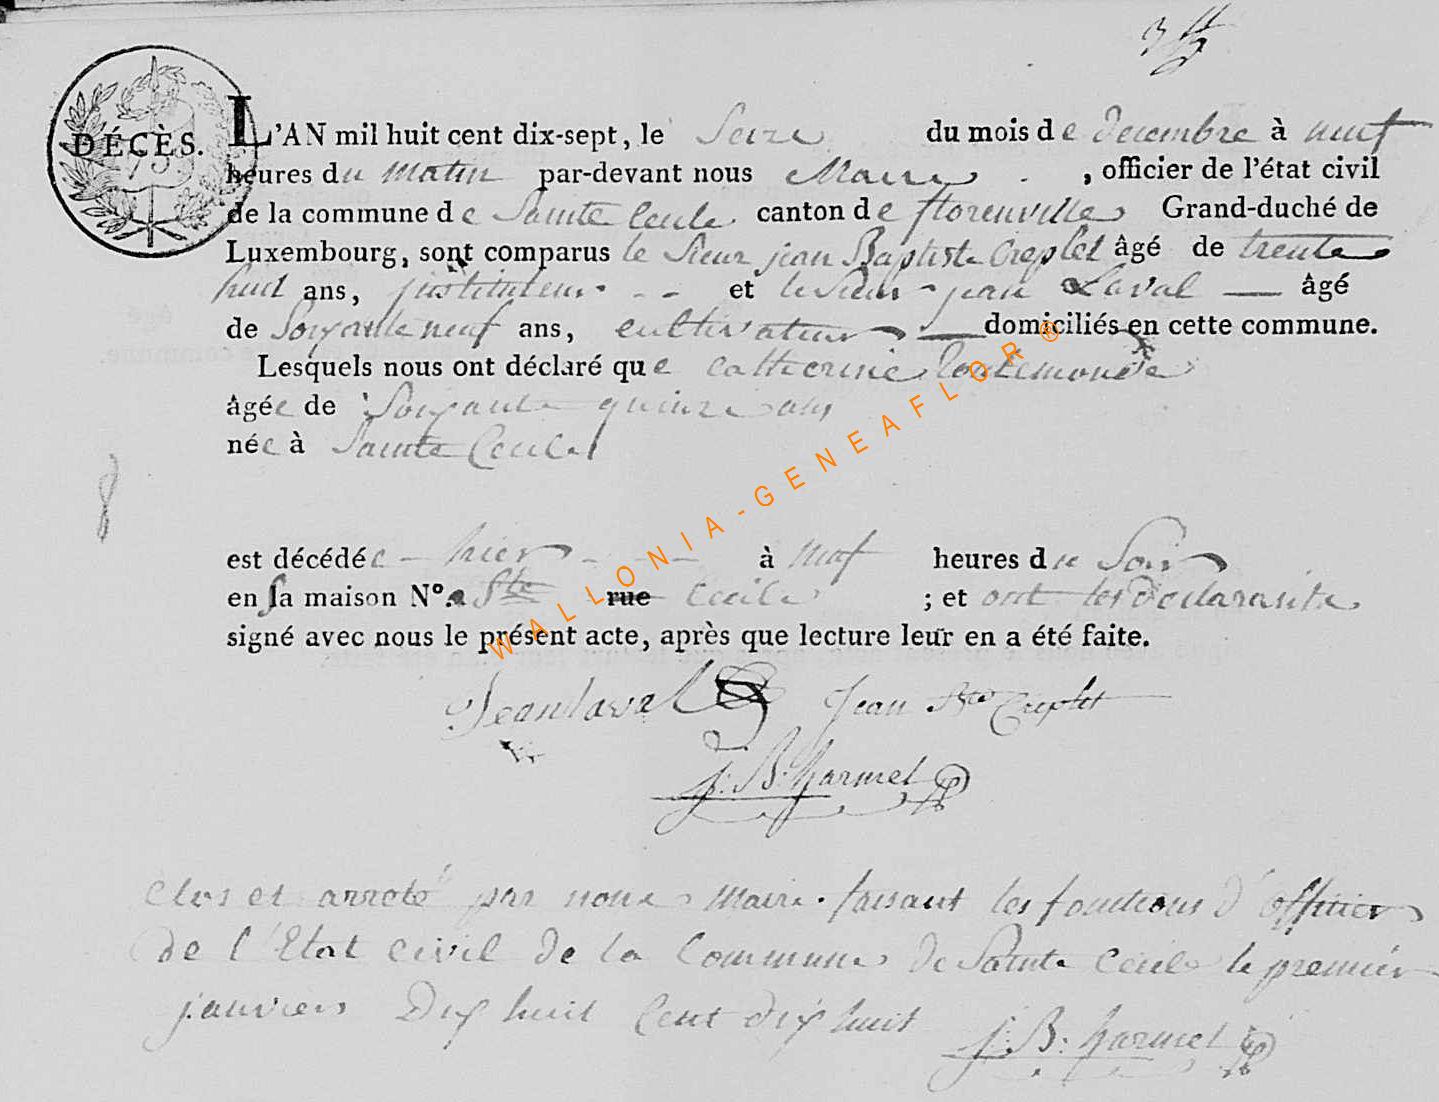 DÉCÈS.
L'AN mil huit cent dix-sept, le Seize du mois de decembre à neuf
heures du Matin par-devant nous Maire , officier de l'état civil
de la commune de Sainte Cecile canton de florenville Grand-duché de
Luxembourg, sont comparus le Sieur jean Baptiste Creplet âgé de trente
huit ans, justituteur et le Sieur jean Laval âgé
de Soixante neuf ans, cultivateur domiciliés en cette commune.
Lesquels nous ont déclaré que catherine
âgée de Soixante quinze ans
née à Sainte Cecile
est décédée hier à neuf heures du Soir
en sa maison N°. a Ste rue Cecile ; et ont les déclarants
signé avec nous le présent acte, après que lecture leur en a été faite.
Jean laval Jean Bte Creplet
j: B: harmel
clos et arroté par nous maire faisant les fonctions d'officier
de l'Etat civil de la Commune de Sainte Cecile le premier
janvier Dix huit Cent dix huit j: B: harmel
WALLONIA-GENEAFLOR®